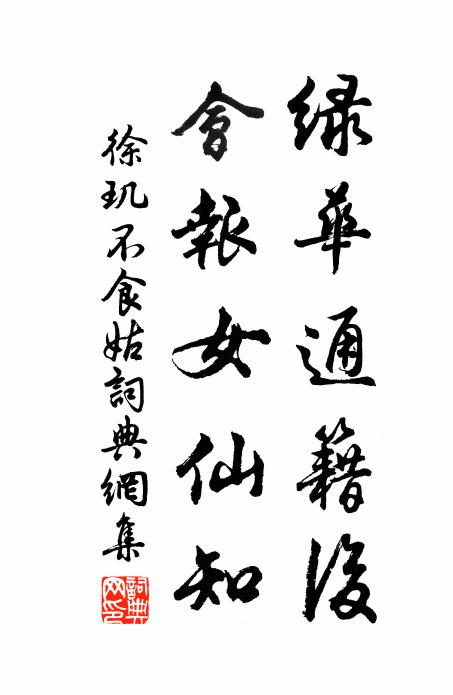 緑華通籍後
會報女仙知
徐玑不食姑詞典網集
詞典网印